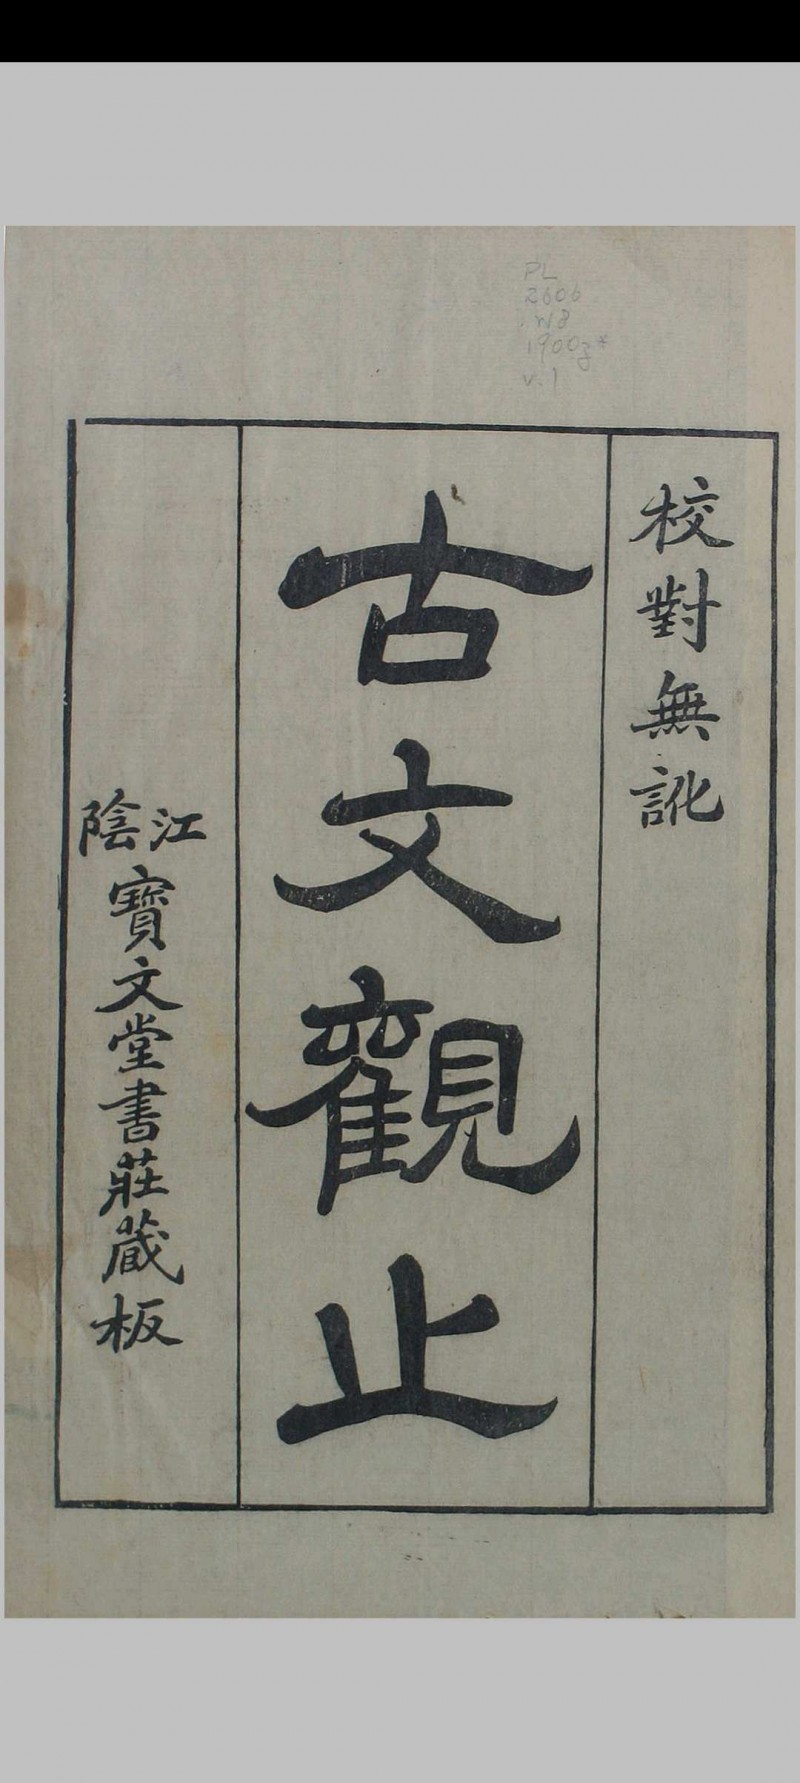 PL
2606
.W8
1900z*
v.1
校對無訛
古文觀止
江陰
寶文堂書莊藏板